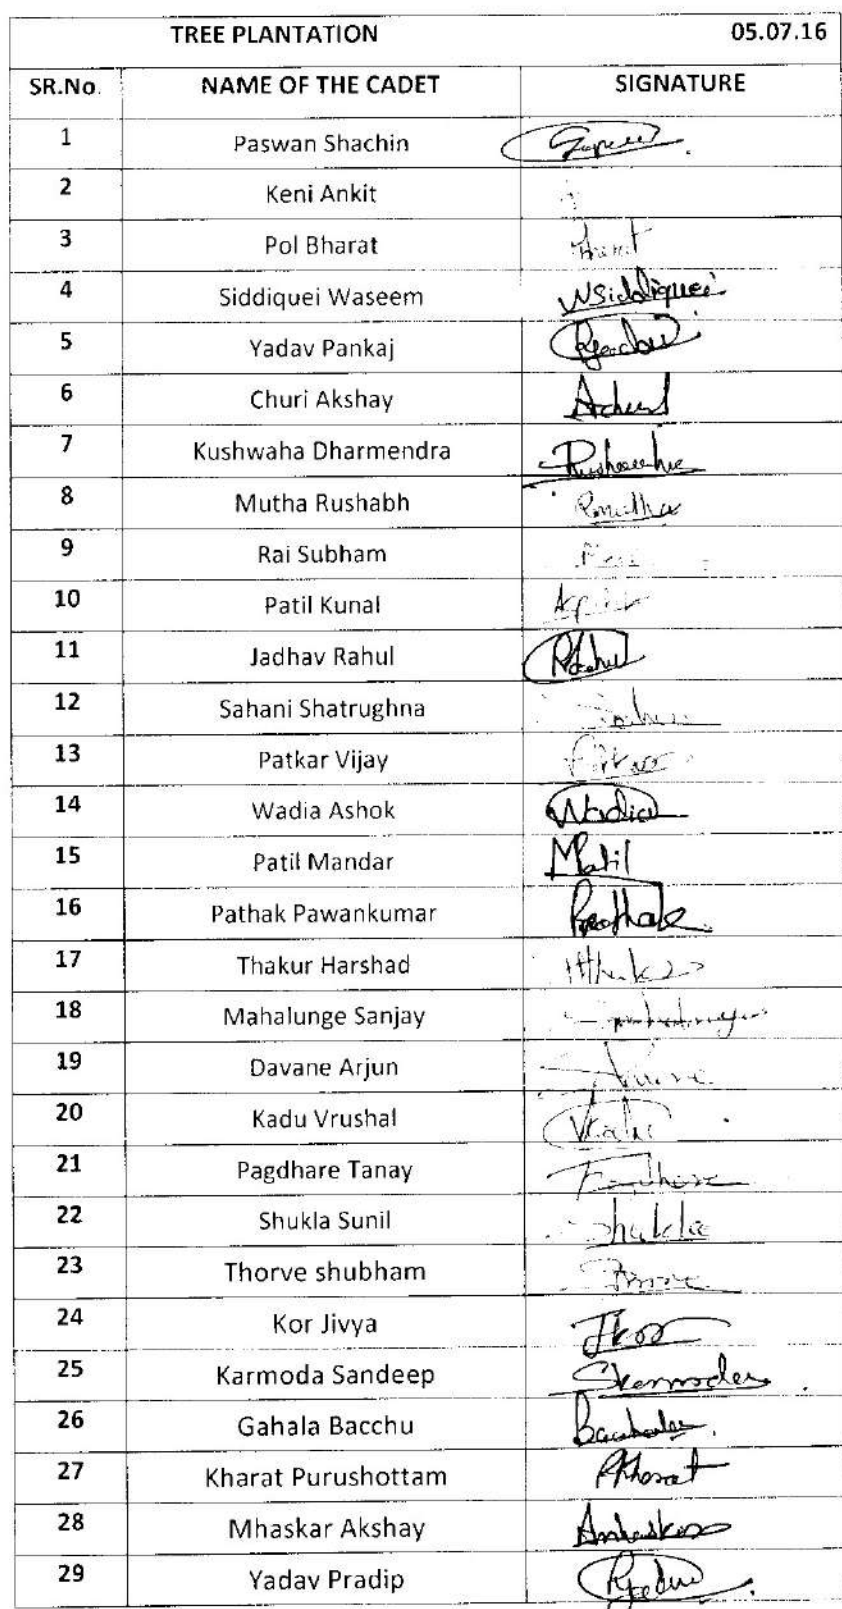 TREE PLANTATION 05.07.16
SR.No. NAME OF THE CADET SIGNATURE
1 Paswan Shachin
2 Keni Ankit
3 Pol Bharat
4 Siddiquei Waseem WSiddiquei
5 Yadav Pankaj
6 Churi Akshay
7 Kushwaha Dharmendra
8 Mutha Rushabh
9 Rai Subham
10 Patil Kunal
11 Jadhav Rahul
12 Sahani Shatrughna
13 Patkar Vijay
14 Wadia Ashok Wadia
15 Patil Mandar MPatil
16 Pathak Pawankumar Pathak
17 Thakur Harshad
18 Mahalunge Sanjay
19 Davane Arjun
20 Kadu Vrushal
21 Pagdhare Tanay
22 Shukla Sunil Shukla
23 Thorve shubham
24 Kor Jivya JKor
25 Karmoda Sandeep SKarmoda
26 Gahala Bacchu
27 Kharat Purushottam PKharat
28 Mhaskar Akshay Amhaskar
29 Yadav Pradip